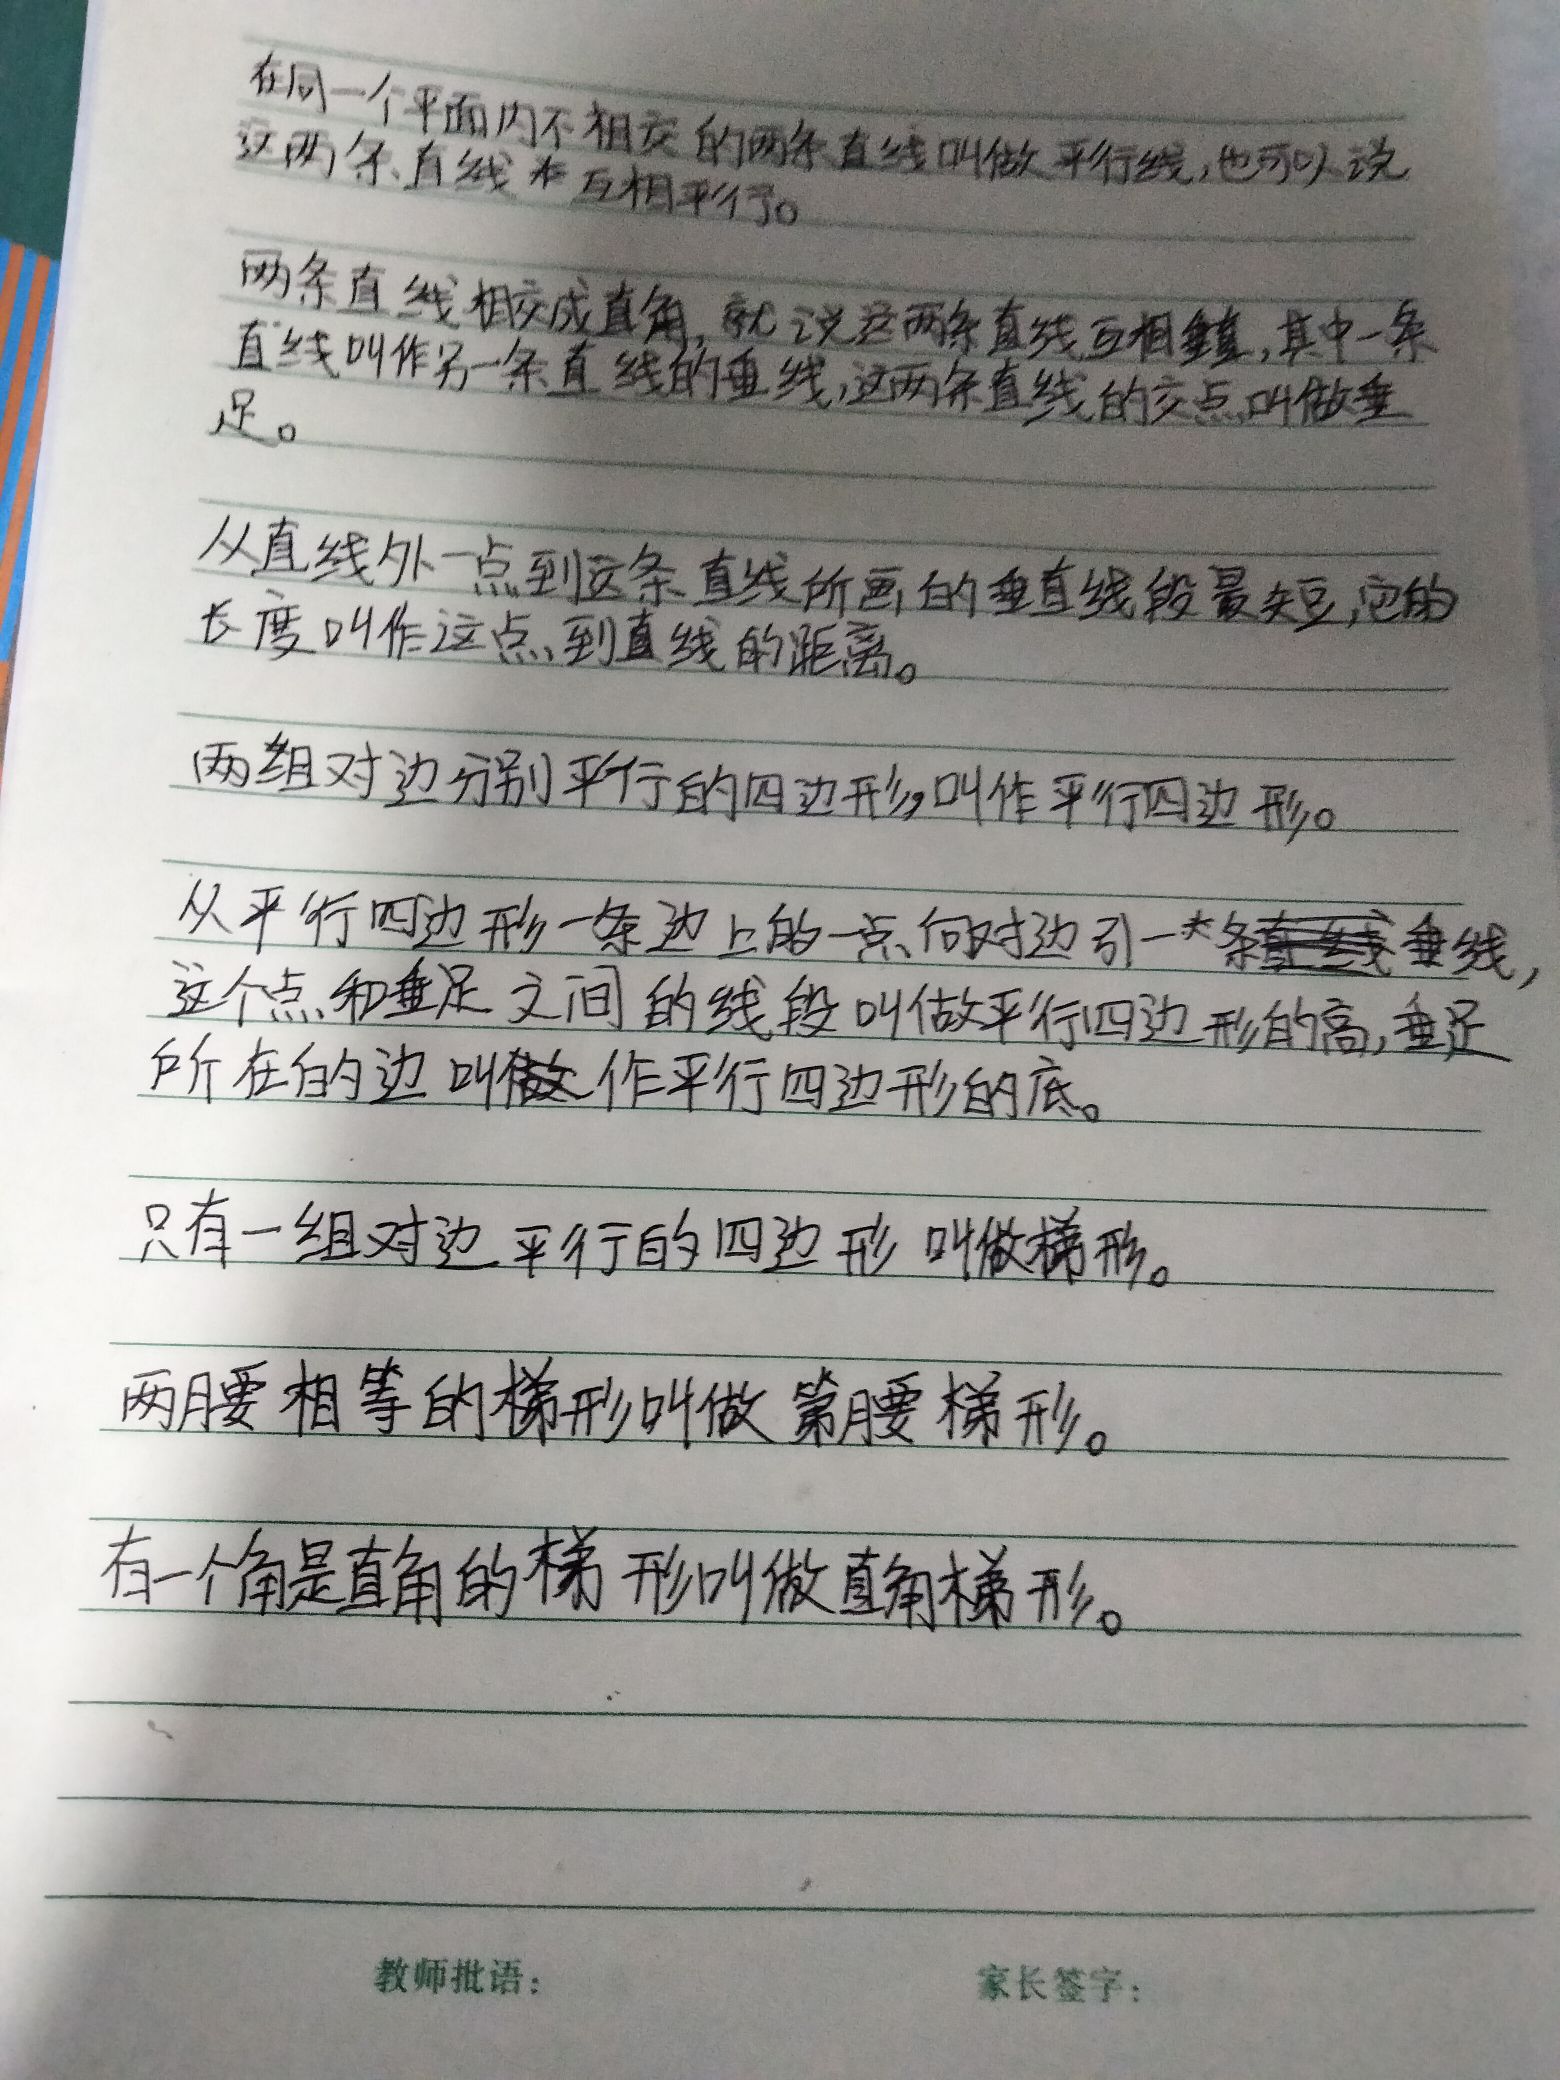 在同一个平面内不相交的两条直线叫做平行线,也可以说
这两条直线互相平行。
两条直线相交成直角,就说这两条直线互相垂直,其中一条
直线叫作另一条直线的垂线,这两条直线的交点叫做垂
足。
从直线外一点到这条直线所画的垂直线段最短,它的
长度叫作这点到直线的距离。
两组对边分别平行的四边形,叫作平行四边形。
从平行四边形一条边上的一点向对边引一条垂线,
这个点和垂足之间的线段叫做平行四边形的高,垂足
所在的边叫作平行四边形的底。
只有一组对边平行的四边形叫做梯形。
两腰相等的梯形叫做第腰梯形。
有一个角是直角的梯形叫做直角梯形。
教师批语:
家长签字: